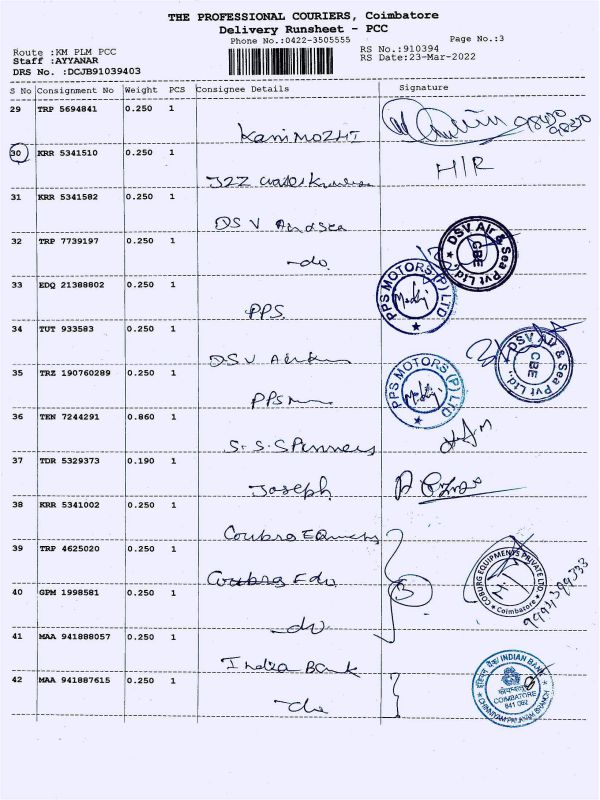 THE PROFESSIONAL COURIERS, Coimbatore
Delivery Runsheet - PCC
Phone No.:0422-3505555
Page No.:3
Route :KM PLM PCC
RS No.:910394
Staff :AYYANAR
RS Date:23-Mar-2022
DRS No. :DCJB91039403
S No Consignment No Weight PCS Consignee Details Signature
29 TRP 5694841 0.250 1
KaniMOZHI
30 KRR 5341510 0.250 1
H/R
31 KRR 5341582 0.250 1
DSV Airdsea
32 TRP 7739197 0.250 1
-do
DSV Air & Sea Pvt Ltd., CBE
33 EDQ 21388802 0.250 1
PPS
PPS MOTORS (P) LTD
34 TUT 933583 0.250 1
DSV
DSV Air & Sea Pvt Ltd., CBE
35 TRZ 190760289 0.250 1
PPS
PPS MOTORS (P) LTD
36 TEN 7244291 0.860 1
S. S. SPinners
37 TDR 5329373 0.190 1
Joseph
38 KRR 5341002 0.250 1
39 TRP 4625020 0.250 1
COBURG EQUIPMENTS PRIVATE LTD Coimbatore
40 GPM 1998581 0.250 1
-do
3
41 MAA 941888057 0.250 1
India Bank
42 MAA 941887615 0.250 1
-do
इंडियन बैंक INDIAN BANK
COIMBATORE
641 062
CHINNIYAM PALAYAM BRANCH